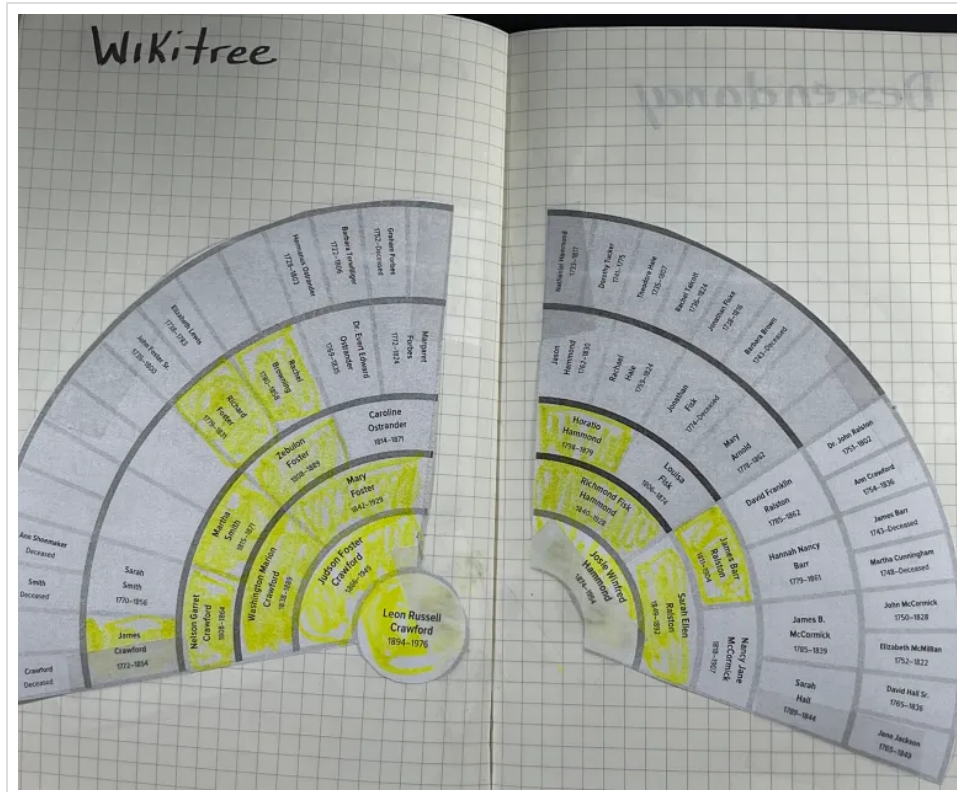 Wikitree
Descendancy
Leon Russell
Crawford
1894–1976
Judson Foster
Crawford
1866–1949
Washington Marion
Crawford
1838–1889
Mary
Foster
1842–1929
Nelson Garret
Crawford
1808–1864
Martha
Smith
1815–1871
Zebulon
Foster
1808–1889
Caroline
Ostrander
1814–1871
James
Crawford
1772–1854
Sarah
Smith
1770–1856
Richard
Foster
Rachel
Browning
1780–1858
Dr. Evert Edward
Ostrander
1769–1835
Margaret
Forbes
1772–1824
Crawford
Deceased
Smith
Deceased
Ann Shoemaker
Deceased
John Foster Sr.
1735–1800
Elizabeth Lewis
1738–1783
Hermanus Ostrander
1728–1803
Barbara Terwilliger
1722–1806
Graham Forbes
1752–Deceased
Josie Winifred
Hammond
1874–1954
Richmond Fisk
Hammond
1840–1928
Sarah Ellen
Ralston
1849–1892
Horatio
Hammond
1798–1879
Louisa
Fisk
1806–1874
James Barr
Ralston
Nancy Jane
McCormick
1818–1907
Jason
Hammond
1762–1830
Rachael
Hale
Jonathan
Fisk
1774–Deceased
Mary
Arnold
1778–1862
David Franklin
Ralston
1785–1862
Hannah Nancy
Barr
1779–1861
James B.
McCormick
1785–1839
Sarah
Hall
1789–1844
Nathaniel Hammond
1733–1817
Dorothy Tucker
Theodore Hale
1735–1807
Rachel Talcott
1736–1824
Jonathan Fiske
1738–1816
Barbara Brown
1743–Deceased
Dr. John Ralston
1753–1802
Ann Crawford
1754–1836
James Barr
1743–Deceased
Martha Cunningham
1748–Deceased
John McCormick
1750–1828
Elizabeth McMillan
1752–1822
David Hall Sr.
1765–1836
Jane Jackson
1765–1849